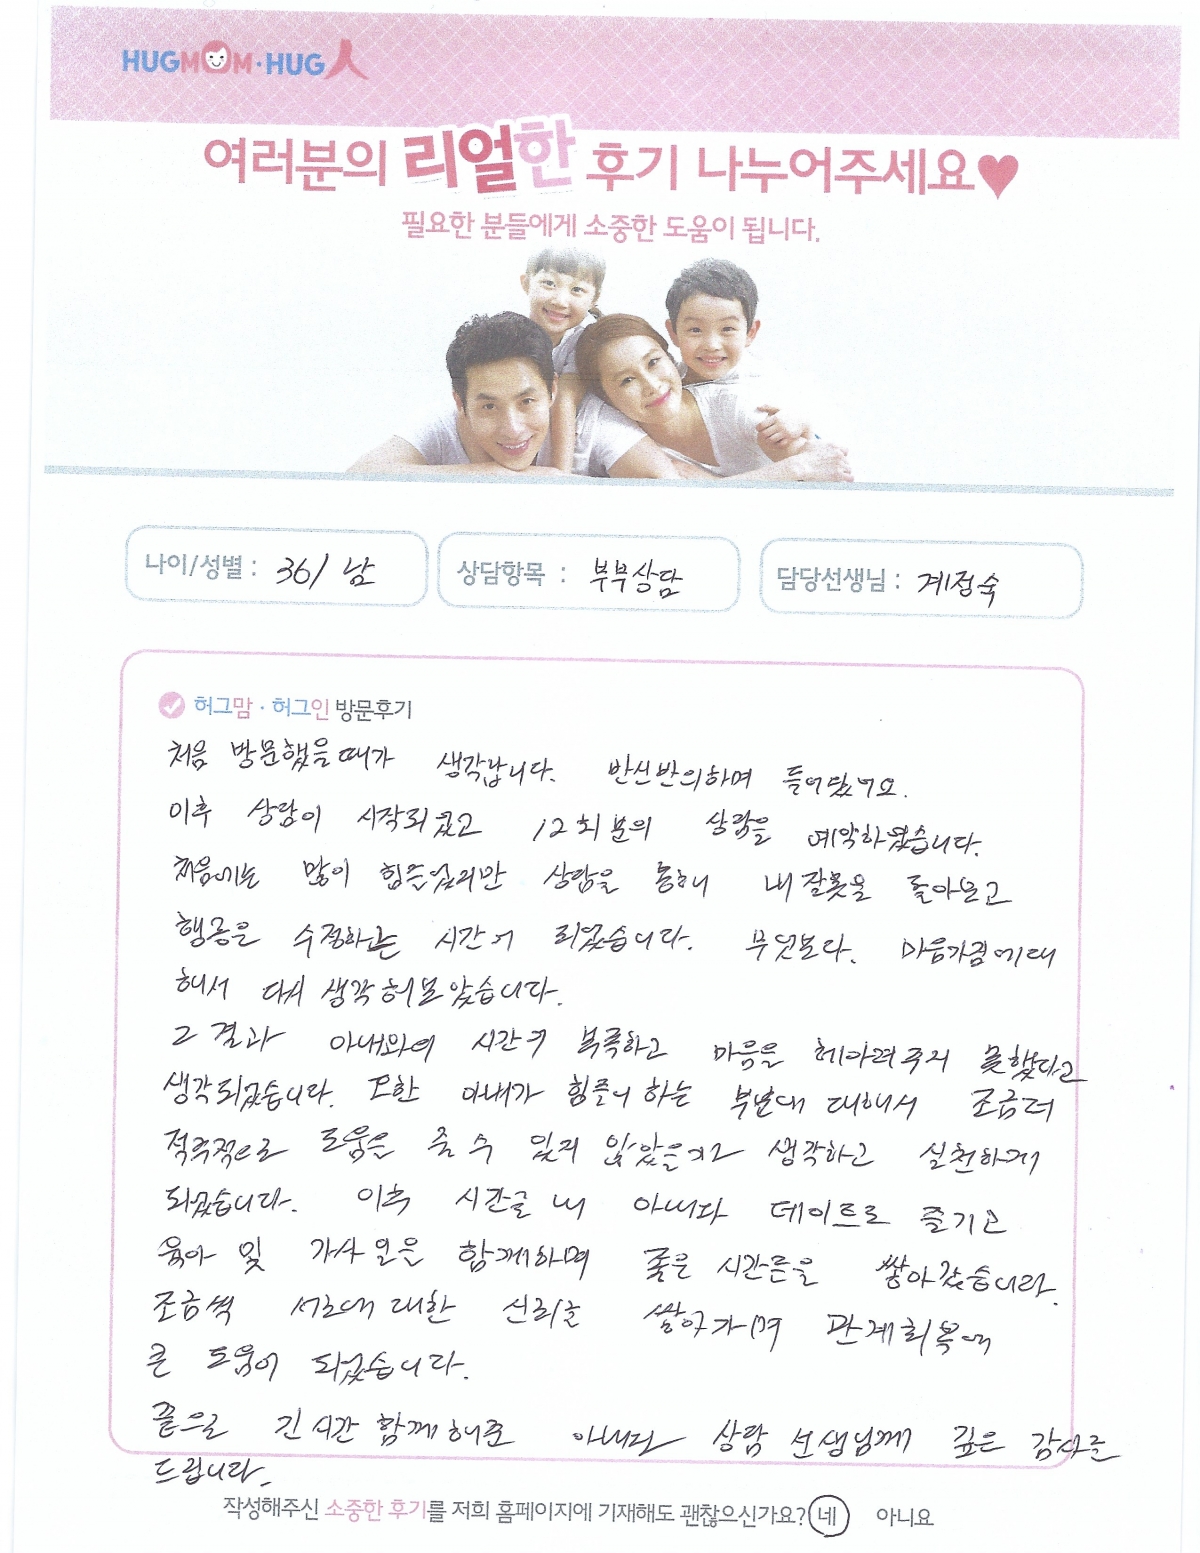 HUGMOM·HUG人
여러분의 리얼한 후기 나누어주세요♥
필요한 분들에게 소중한 도움이 됩니다.
나이/성별 : 36/남
상담항목 : 부부상담
담당선생님 : 계정숙
허그맘·허그인 방문후기
처음 방문했을때가 생각납니다. 반신반의하며 들어왔어요.
이후 상담이 시작되었고 12회분의 상담을 예약하였습니다.
처음에는 많이 힘들었지만 상담을 통해 내잘못을 돌아보고
행동을 수정하는 시간이 되었습니다. 무엇보다. 마음가짐에대
해서 다시 생각해보았습니다.
그결과 아내와의 시간이 부족하고 마음을 헤아려주지 못했다고
생각되었습니다. 또한 아내가 힘들어하는 부분에 대해서 조금더
적극적으로 도움을 줄 수 있지 않았을까고 생각하고 실천하게
되었습니다. 이후 시간을 내 아내와 데이트로 즐기고
육아 및 가사일을 함께하며 좋은 시간들을 쌓아갔습니다.
조금씩 서로에 대한 신뢰를 쌓아가며 관계회복에
큰 도움이 되었습니다.
끝으로 긴시간 함께해준 아내와 상담 선생님께 깊은 감사를
드립니다.
작성해주신 소중한 후기를 저희 홈페이지에 기재해도 괜찮으신가요? 네 아니요